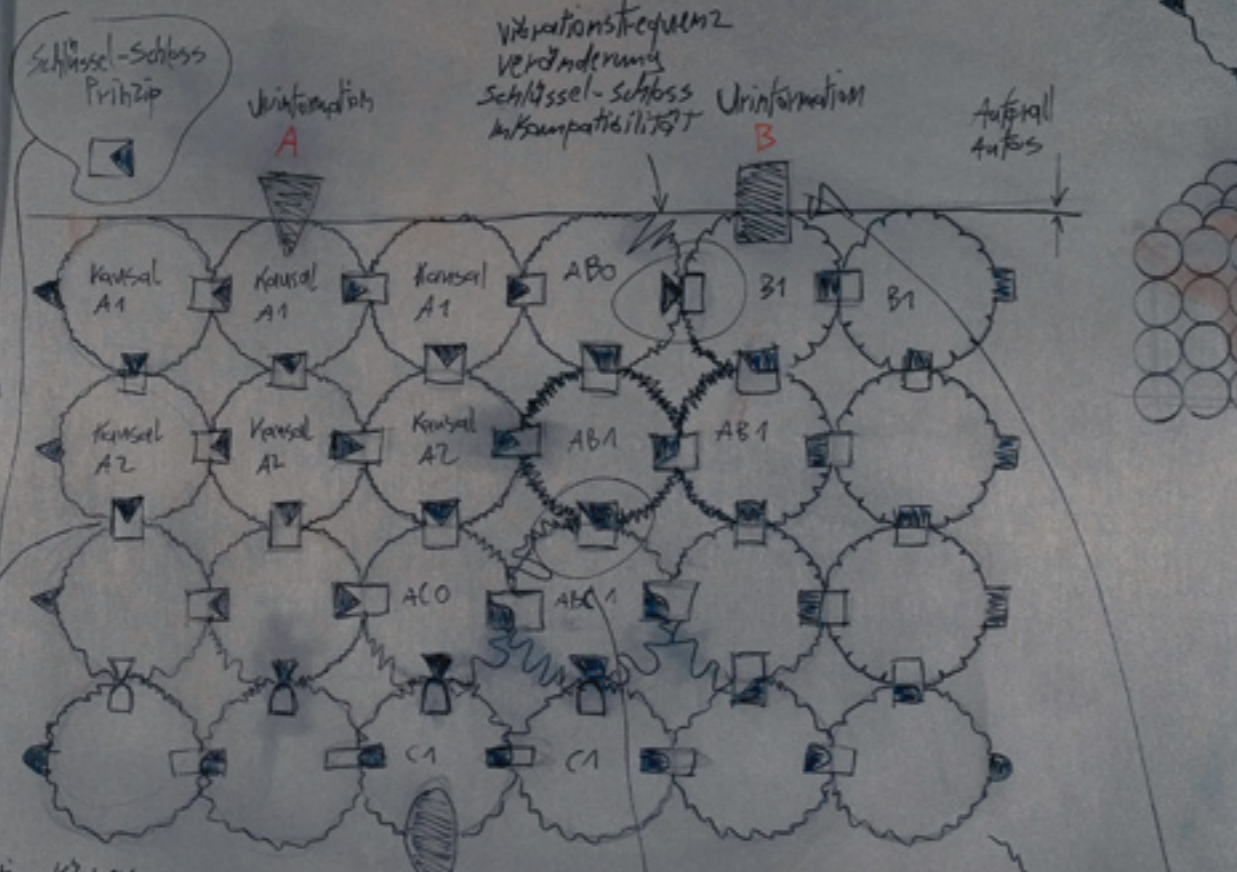 Schlüssel-Schloss
Prinzip
Urinformation
A
Vibrationsfrequenz
veränderung
Schlüssel-Schloss
Inkompatibilität
Urinformation
B
Kausal
A1
Kausal
A1
Kausal
A1
AB0
B1
B1
Kausal
A2
Kausal
A2
Kausal
A2
AB1
AB1
AC0
ABC1
C1
C1